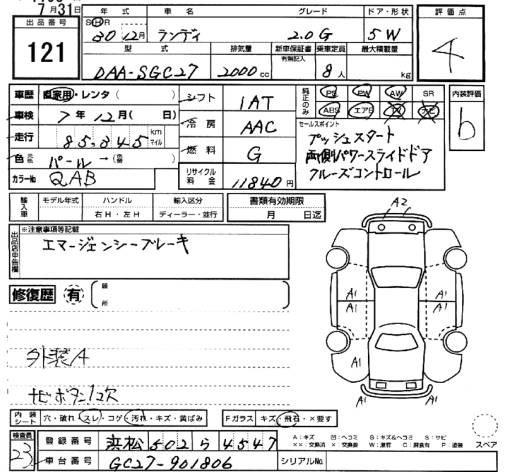 7月31日
出品番号 121
年式 車名 グレード ドア・形状 評価点
SH 30年12月 ランディ 2.0G 5W 4
型式 排気量 新車保証書 乗車定員 最大積載量
有無記入
DAA-SGC27 2000cc 8人 kg
車歴 自家用・レンタ( ) シフト 1AT 純正のみ PS PW AW SR 内装評価
車検 7年12月(日) 冷房 AAC ABS エアB b
走行 85,845 km マイル 燃料 G セールスポイント
色 パール→ リサイクル料金 11840円 プッシュスタート
カラーNo QAB 両側パワースライドドア
クルーズコントロール
輸入車 モデル年式 ハンドル 輸入区分 書類有効期限
年 右H・左H ディーラー・並行 月 日迄
出品店申告欄 ※注意事項等記載
エマージェンシーブレーキ
修復歴 有 ( 箇所
A2
A1 A1
A1 A1
A1
外装A
ナビボタン1欠
内装シート 穴・破れ スレ・コゲ 汚れ・キズ・黄ばみ Fガラス キズ・飛石・×要す
検査員 23 登録番号 浜松 502 ら 4547
車台番号 GC27-901806 シリアルNo
A:キズ U:ヘコミ B:キズ&ヘコミ S:サビ
××:交換済 ×:交換跡 W:波打 C:腐食有 P:塗装
スペア